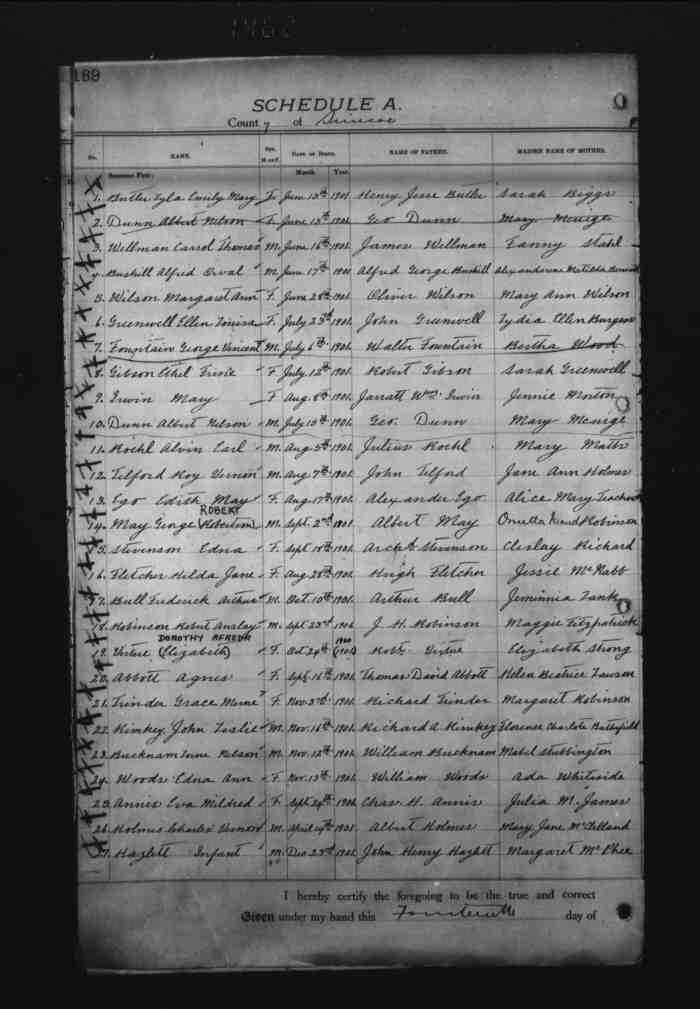 189
SCHEDULE A.
County of Simcoe
No. NAME. Sex. M. or F. DATE OF BIRTH. NAME OF FATHER. MAIDEN NAME OF MOTHER.
Surname First: Month Year.
1. Butler Zyla Emily Mary F. June 13th 1901. Henry Jesse Butler Sarah Biggs
2. Dunn Albert Nelson F. June 13th 1901. Geo Dunn Mary
3. Wellman Carrol Thomas M. June 16th 1901. James Wellman Fanny Stahl
4. Bushill Alfred Orval M. June 17th 1901 Alfred George Bushill Matilda
5. Wilson Margaret Ann F. June 28th 1901. Oliver Wilson Mary Ann Wilson
6. Greenwell Ellen Louisa F. July 23d 1901. John Greenwell Lydia Ellen Burgess
7. Fountain George Vincent M. July 6th 1901. Walter Fountain Bertha Wood
8. Gibson Ethel F July 12th 1901. Robert Gibson Sarah Greenwell
9. Irwin Mary F Aug. 8th 1901. Jarratt Wm. Irwin Jennie Morton
10. Dunn Albert Nelson M. July 13th 1901. Geo. Dunn Mary
11. Koehl Alvin Earl M. Aug 5th 1901. Julius Koehl Mary
12. Telford Roy Vernon M. Aug 7th 1901. John Telford Jane Ann Holmes
13. Ego Edith May F. Aug 17th 1901. Alexander Ego Alice Mary
ROBERT
14. May George (Robertson) M. Sept. 2nd 1901. Albert May Robinson
15. Stevenson Edna F. Sept 18th 1901. Archd Stevenson Richard
16. Fletcher Hilda Jane F. Aug 28th 1901. Hugh Fletcher Jessie McNabb
17. Bull Frederick Arthur M. Oct. 10th 1901. Arthur Bull Jemimia
18. Robinson Robert M. Sept 23d 1901. J. H. Robinson Maggie Fitzpatrick
DOROTHY ALFREDA 1900
19. Virtue (Elizabeth) F. Oct 24th (1901) Robt. Virtue Elizabeth Strong
20. Abbott Agnes F. Sept. 16th 1901. Thomas David Abbott Helen Beatrice Lawson
21. Trinder Grace F. Nov. 3rd 1901. Richard Trinder Margaret Robinson
22. Kimkey John Leslie M. Nov. 16th 1901. Richard A Kimkey Florence Charlote Butterfield
23. Bucknam Nelson M. Nov. 12th 1901. William Bucknam Mabel Stubbington
24. Woods Edna Ann F. Nov. 13th 1901. William Woods Ada Whiteside
25. Annis Eva Mildred F. Sept 24th 1901. Chas. H. Annis Julia M. James
26. Holmes Charles Vernon M. April 14th 1901. Albert Holmes Mary Jane McClelland
27. Hazlett Infant M. Dec 23d 1901. John Henry Hazlett Margaret McPhee
I hereby certify the foregoing to be the true and correct
Given under my hand this Fourteenth day of